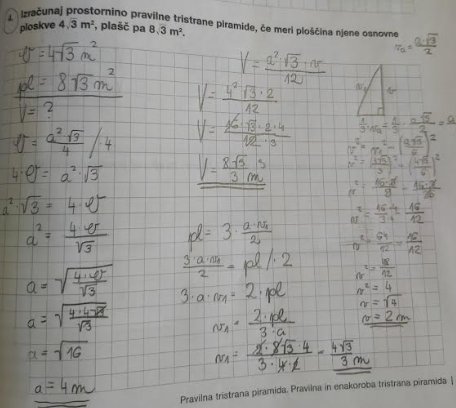 4. Izračunaj prostornino pravilne tristrane piramide, če meri ploščina njene osnovne
ploskve 4√3 m², plašč pa 8√3 m².
O = 4√3 m²
pl = 8√3 m²
V = ?
O = a²√3/4 /·4
4·O = a²·√3
a²·√3 = 4·O
a² = 4·O/√3
a = √(4·O/√3)
a = √(4·4√3/√3)
a = √16
a = 4 m
V = a²·√3·v/12
V = 4²·√3·2/12
V = 8√3/3 m³
pl = 3·a·v₁/2
3·a·v₁/2 = pl /·2
3·a·v₁ = 2·pl
v₁ = 2·pl/3·a
v₁ = 2·8√3·4/3·4·1 = 4√3/3 m
vₐ = a·√3/2
v² = 4
v = √4
v = 2 m
Pravilna tristrana piramida. Pravilna in enakoroba tristrana piramida